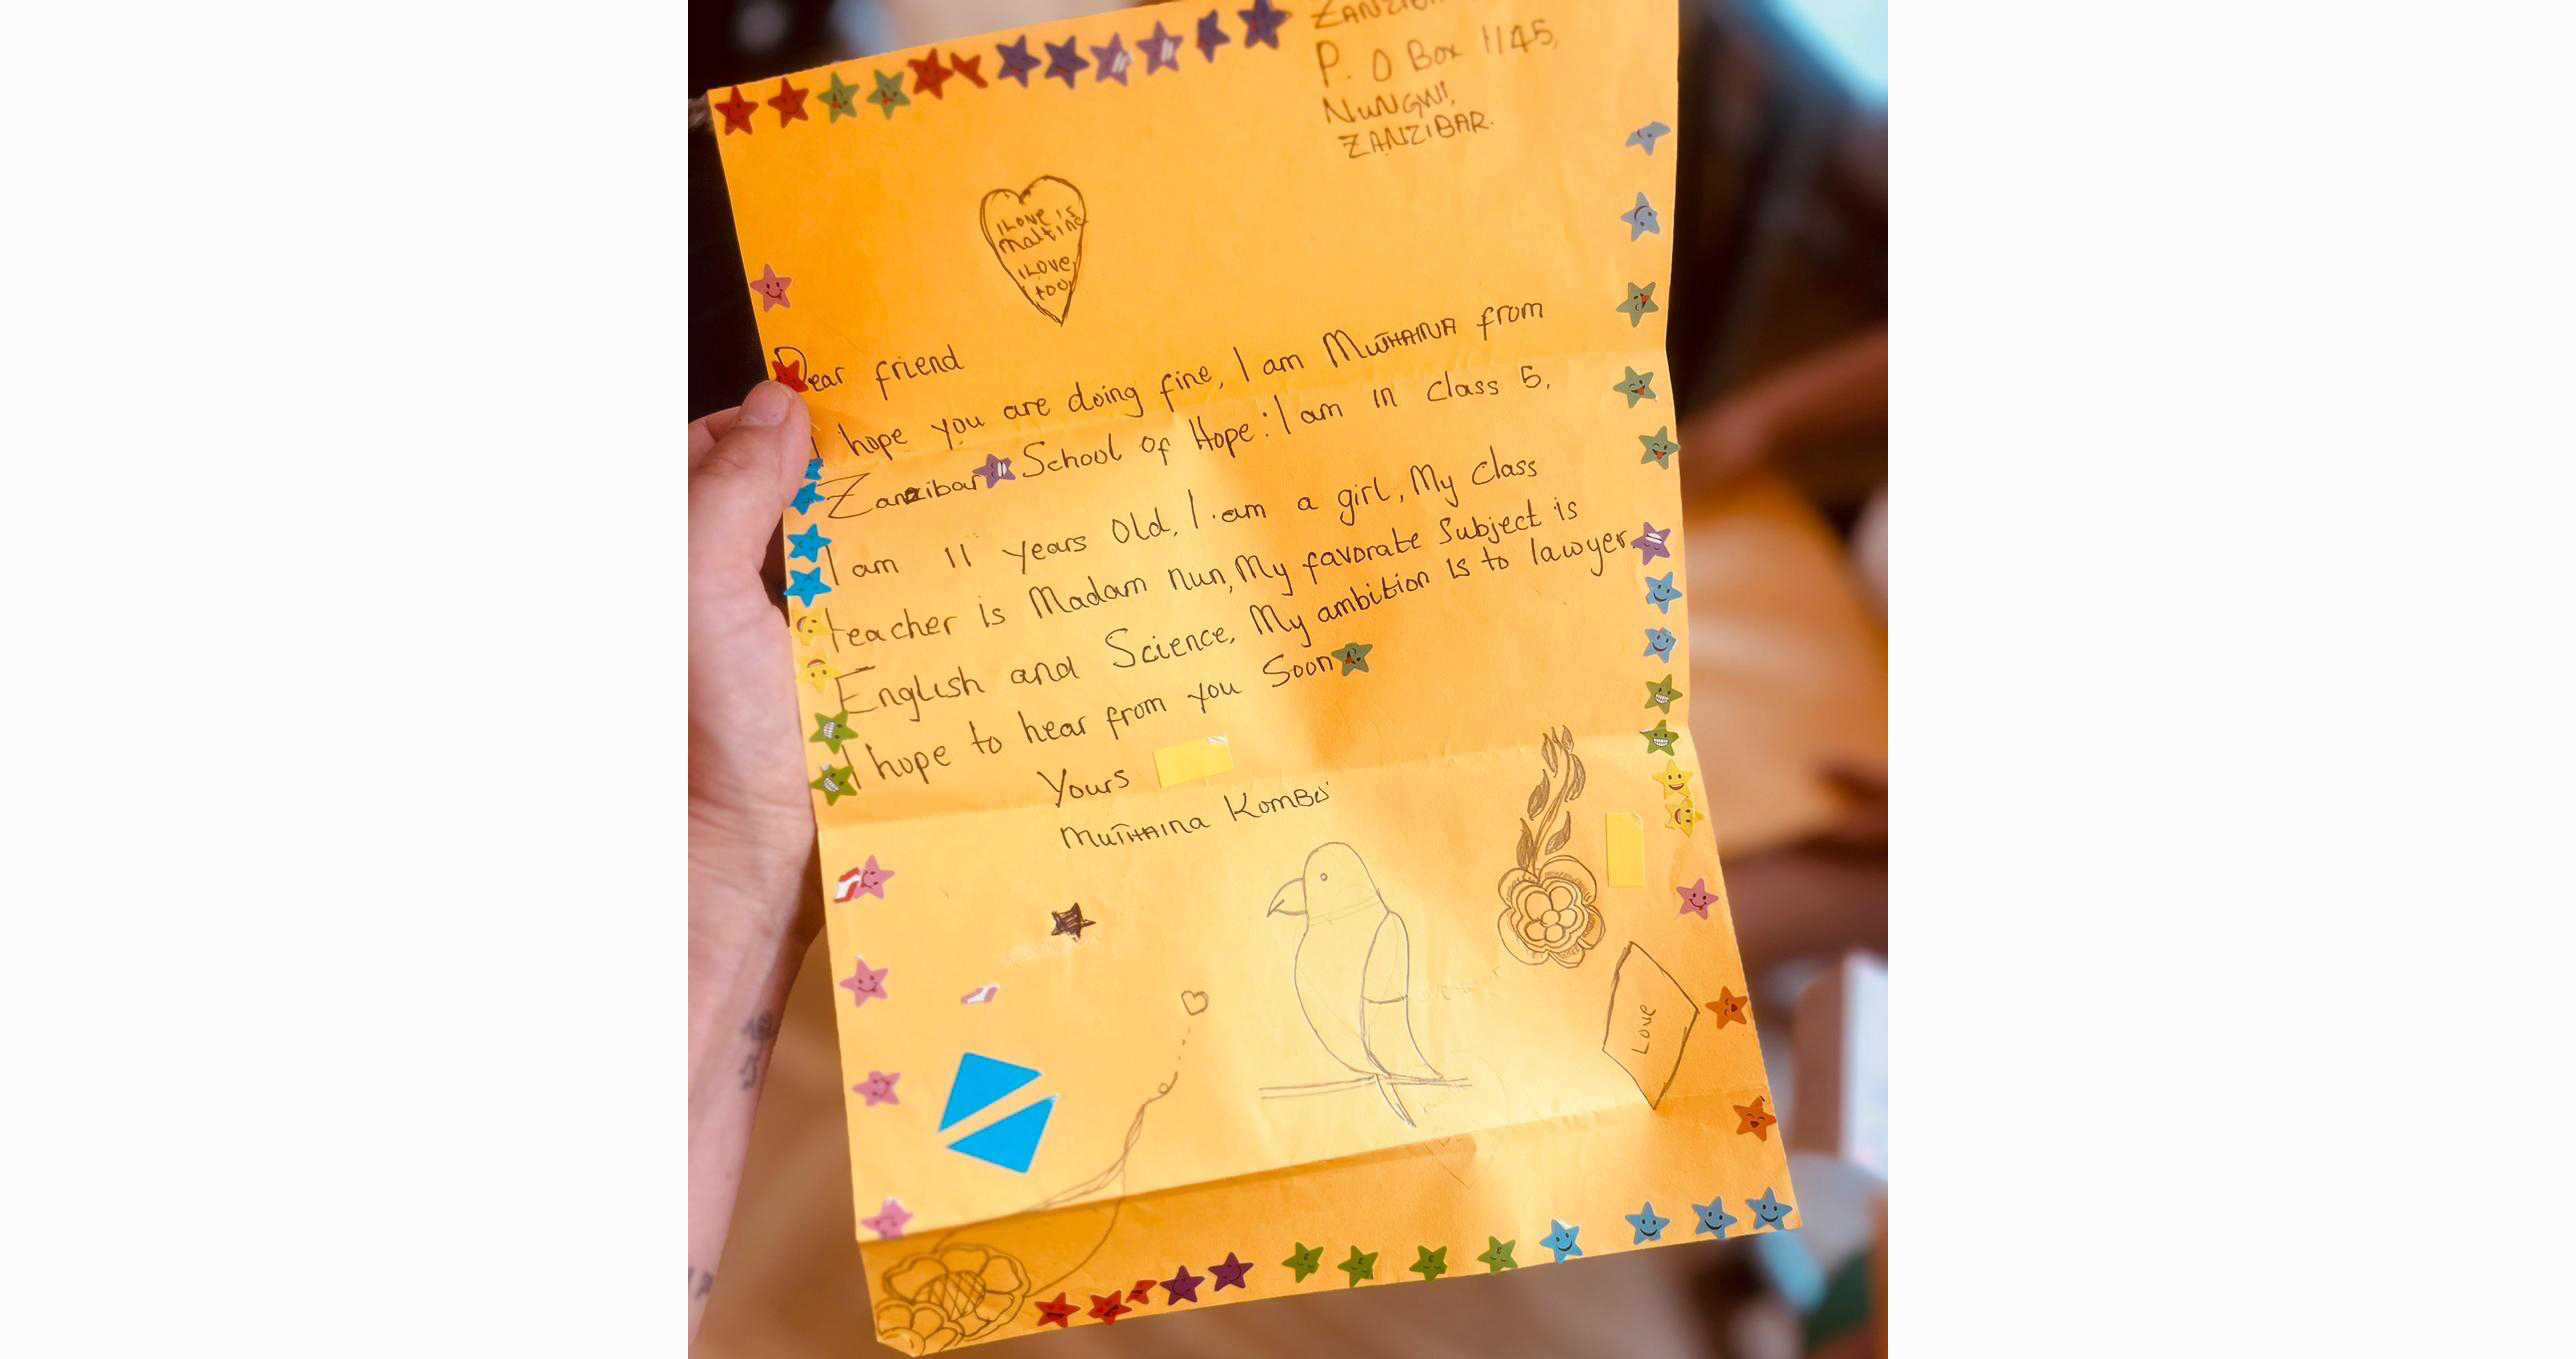 ZANZIBAR
P. O Box 1145,
NUNGWI,
ZANZIBAR.
I LOVE is
maltina
I LOVE
too
Dear friend
I hope you are doing fine, I am MUTHAINA from
Zanzibar School of Hope: I am in class 5.
I am 11 years Old, I am a girl, My class
teacher is Madam nun, My favorate Subject is
English and Science, My ambition is to lawyer
I hope to hear from you Soon
Yours
MUTHAINA KOMBO
Love